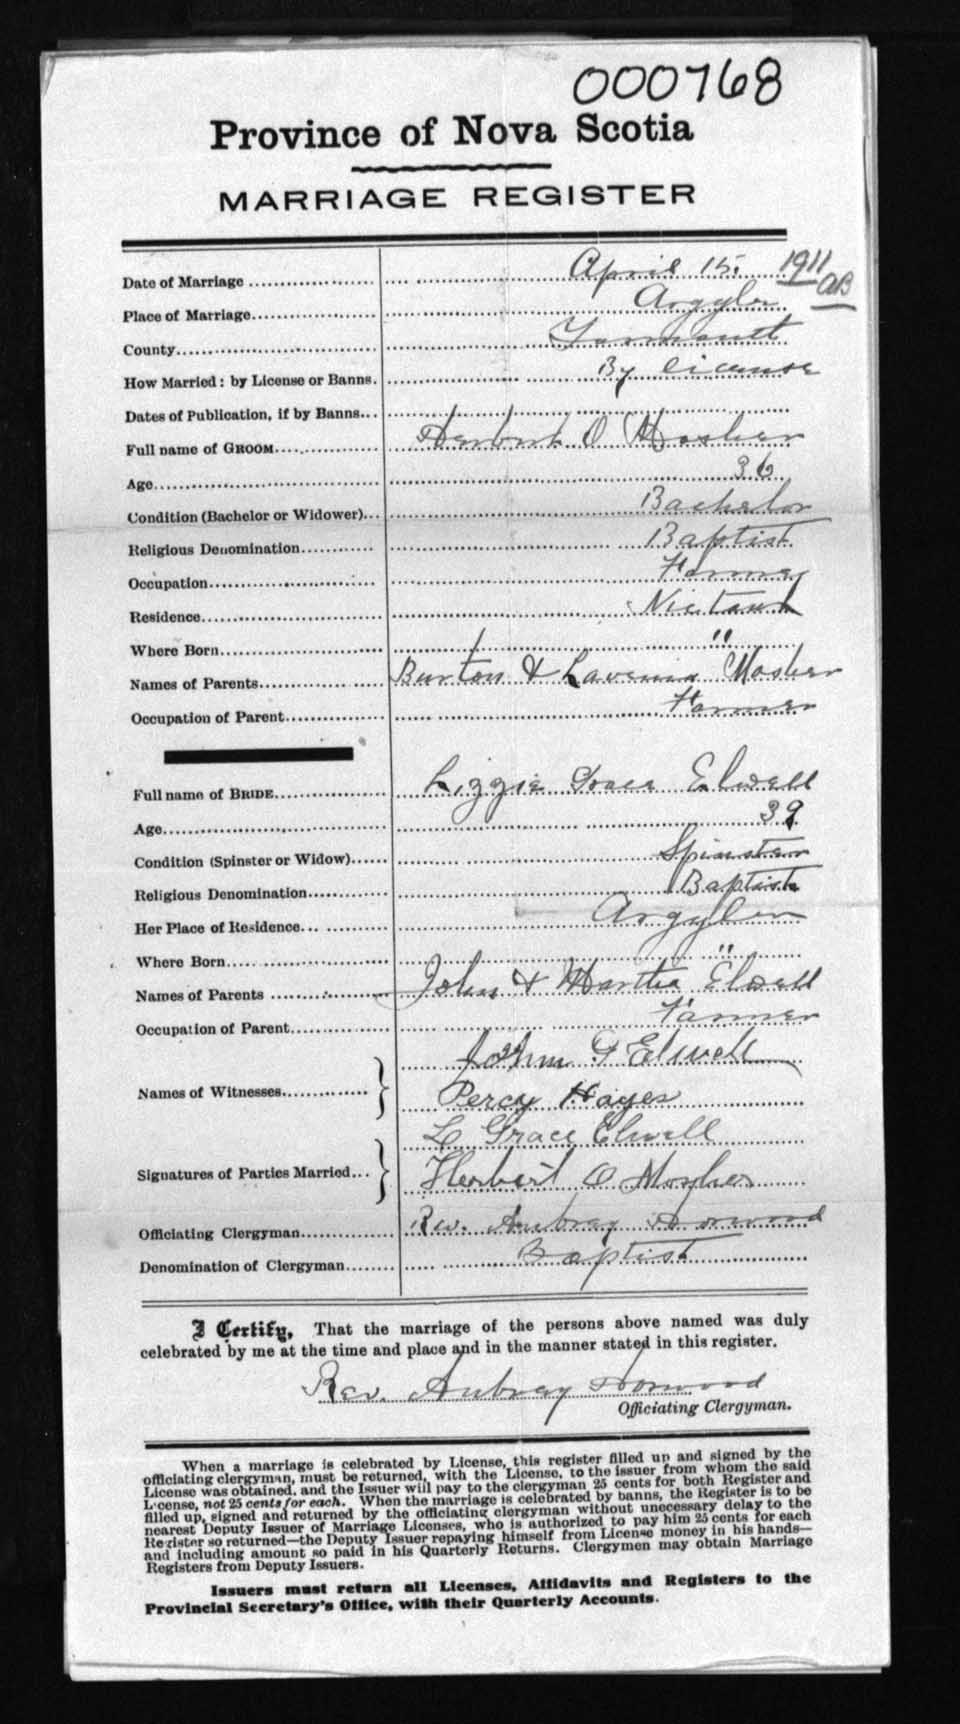 000768
Province of Nova Scotia
MARRIAGE REGISTER
Date of Marriage April 15. 1911
AB
Place of Marriage Argyle
County Yarmouth
How Married: by License or Banns. By license
Dates of Publication, if by Banns
Full name of GROOM Herbert O Mosher
Age 36
Condition (Bachelor or Widower) Bachelor
Religious Denomination Baptist
Occupation Farmer
Residence Nictaux
Where Born "
Names of Parents Burton & Lavenia Mosher
Occupation of Parent Farmer
Full name of BRIDE Lizzie Grace Elwell
Age 39
Condition (Spinster or Widow) Spinster
Religious Denomination Baptist
Her Place of Residence Argyle
Where Born "
Names of Parents John & Martha Elwell
Occupation of Parent Farmer
Names of Witnesses John F Elwell
Percy Hayes
Signatures of Parties Married L Grace Elwell
Herbert O Mosher
Officiating Clergyman Rev. Aubray
Denomination of Clergyman Baptist
I Certify, That the marriage of the persons above named was duly
celebrated by me at the time and place and in the manner stated in this register.
Rev. Aubray
Officiating Clergyman.
When a marriage is celebrated by License, this register filled up and signed by the
officiating clergyman, must be returned, with the License, to the issuer from whom the said
License was obtained, and the Issuer will pay to the clergyman 25 cents for both Register and
License, not 25 cents for each. When the marriage is celebrated by banns, the Register is to be
filled up, signed and returned by the officiating clergyman without unnecessary delay to the
nearest Deputy Issuer of Marriage Licenses, who is authorized to pay him 25 cents for each
Register so returned—the Deputy Issuer repaying himself from License money in his hands—
and including amount so paid in his Quarterly Returns. Clergymen may obtain Marriage
Registers from Deputy Issuers.
Issuers must return all Licenses, Affidavits and Registers to the
Provincial Secretary's Office, with their Quarterly Accounts.